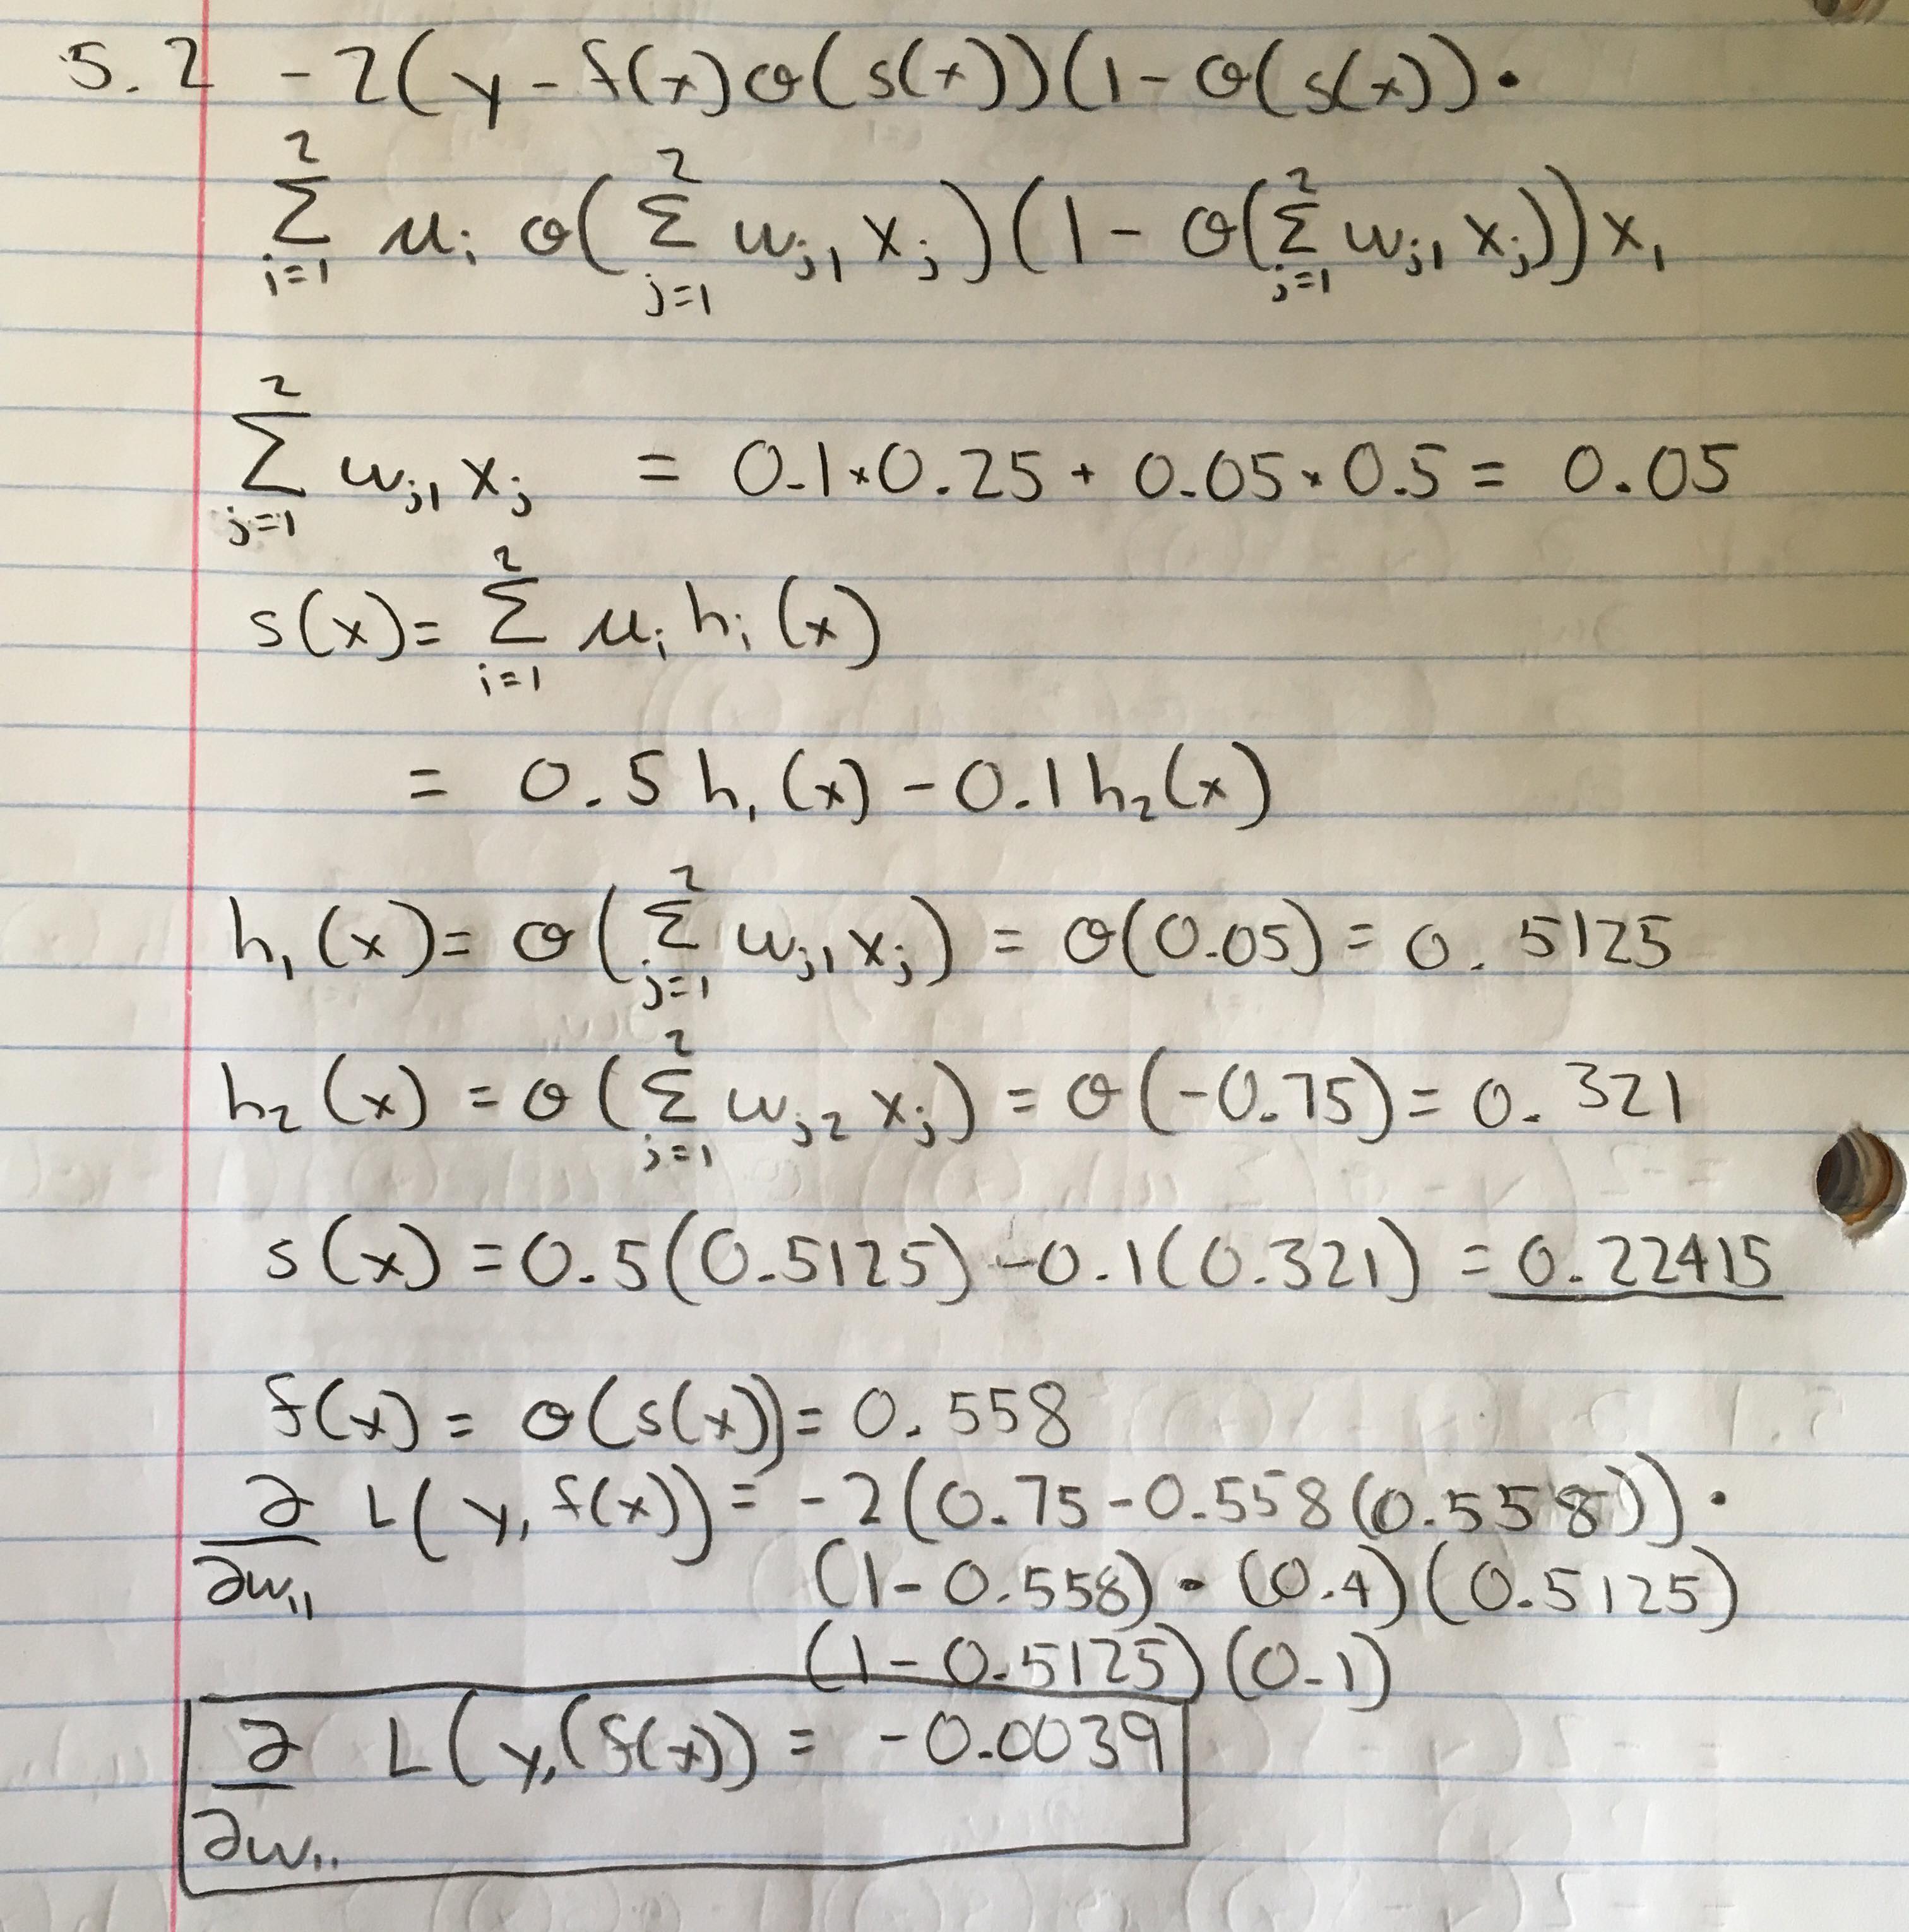 5.2 -2(y-f(x)σ(s(x))(1-σ(s(x))·
∑_{i=1}^{2} μ_i σ(∑_{j=1}^{2} w_{j1} x_j)(1-σ(∑_{j=1}^{2} w_{j1} x_j))x_1
∑_{j=1}^{2} w_{j1} x_j = 0.1*0.25 + 0.05*0.5 = 0.05
s(x)= ∑_{i=1}^{2} μ_i h_i(x)
= 0.5 h_1(x) - 0.1 h_2(x)
h_1(x)= σ(∑_{j=1}^{2} w_{j1} x_j) = σ(0.05) = 0.5125
h_2(x) = σ(∑_{j=1}^{2} w_{j2} x_j) = σ(-0.75) = 0.321
s(x) = 0.5(0.5125) - 0.1(0.321) = 0.22415
f(x) = σ(s(x)) = 0.558
∂/∂w_{11} L(y, f(x)) = -2(0.75-0.558(0.558))·
(1-0.558)·(0.4)(0.5125)
(1-0.5125)(0.1)
∂/∂w_{11} L(y,(f(x)) = -0.0039